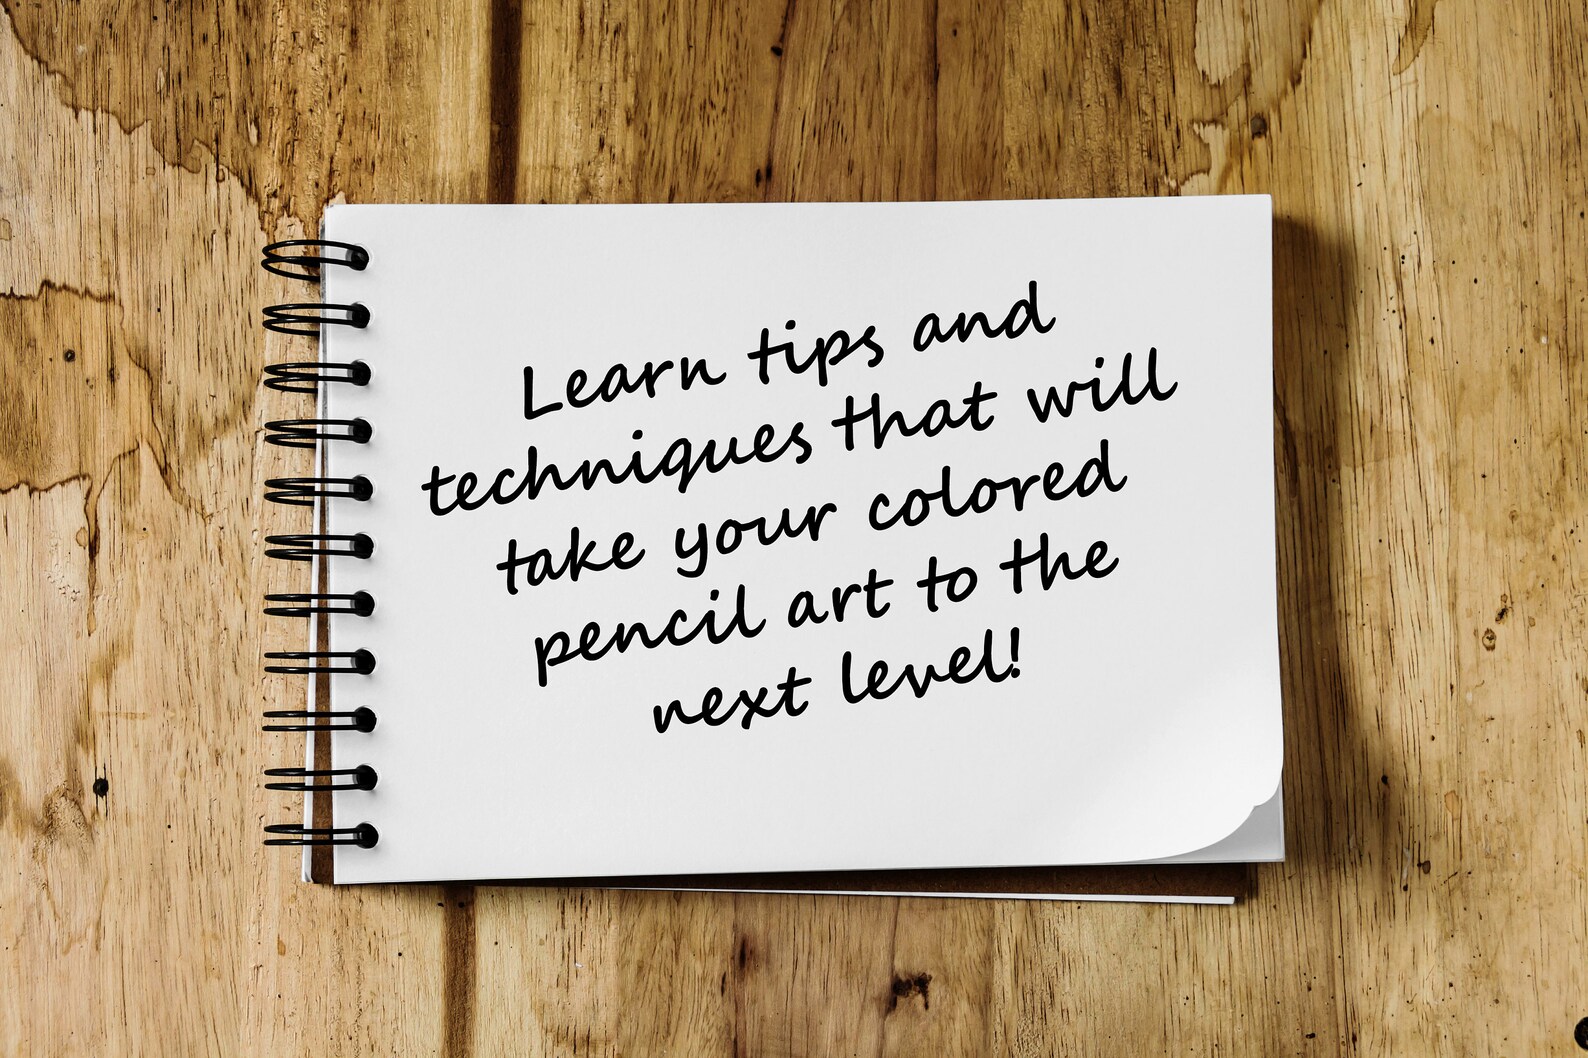 Learn tips and
techniques that will
take your colored
pencil art to the
next level!